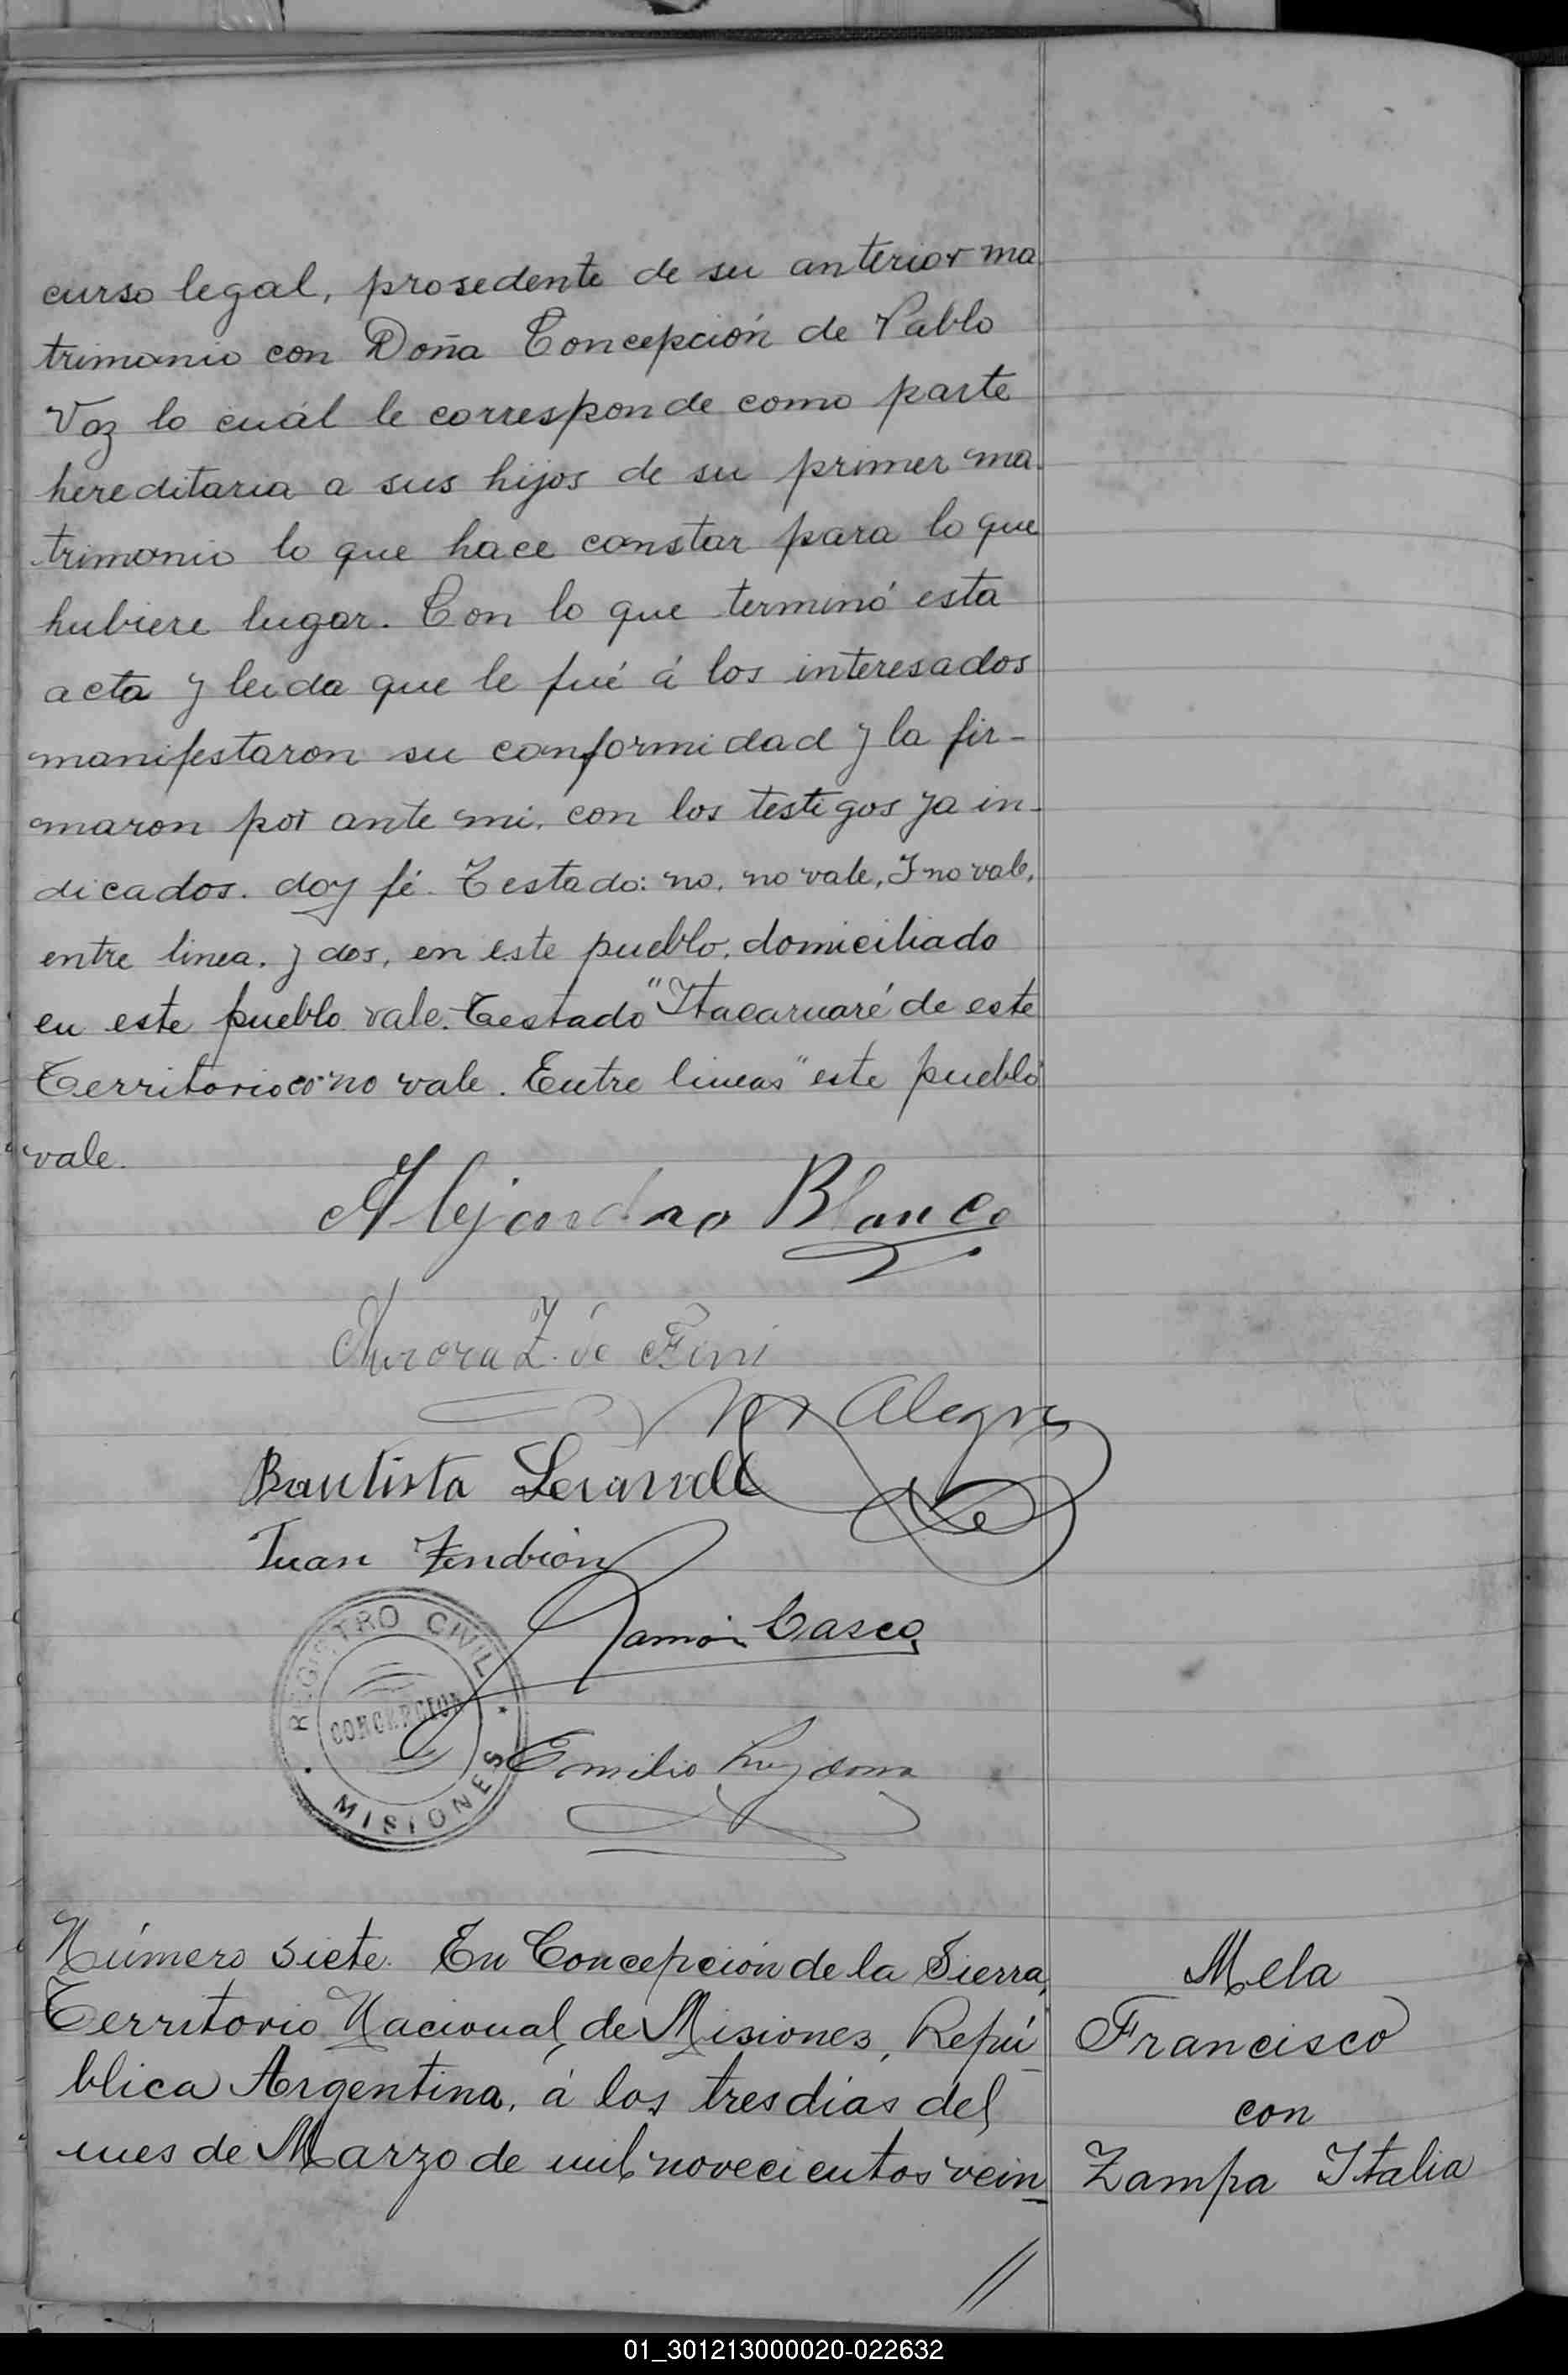 curso legal, prosedente de su anterior ma
trimonio con Doña Concepción de Pablo
Voz lo cuál le corresponde como parte
hereditaria a sus hijos de su primer ma
trimonio lo que hace constar para lo que
hubiere lugar. Con lo que terminó esta
acta y leida que le fué á los interesados
manifestaron su conformidad y la fir-
maron por ante mi, con los testigos ya in-
dicados. doy fé. Testado: no, no vale, I no vale,
entre linea. y dos, en este pueblo, domiciliado
en este pueblo vale. Testado "Itacaruaré de este
Territorio" no vale. Entre lineas "este pueblo"
vale.
Alejandro Blanco
Aurora Z. de
Alegre
Bautista
Juan
Ramón Casco
REGISTRO CIVIL
CONCEPCION
MISIONES
Emilio
Número siete. En Concepción de la Sierra,
Territorio Nacional, de Misiones, Repú
blica Argentina, á los tres dias del
mes de Marzo de mil novecientos vein
Mela
Francisco
con
Zampa Italia
01_301213000020-022632